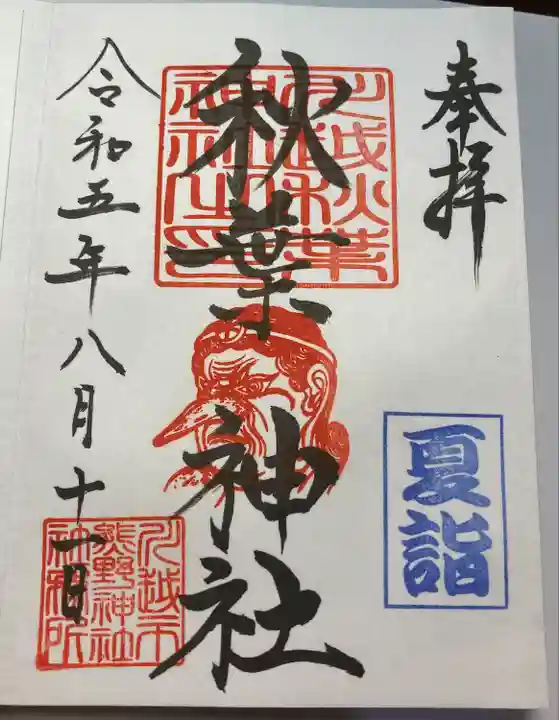 奉拝
夏詣
秋葉神社
川越秋葉
神社之印
令和五年八月十一日
川越市
熊野神社
社務所